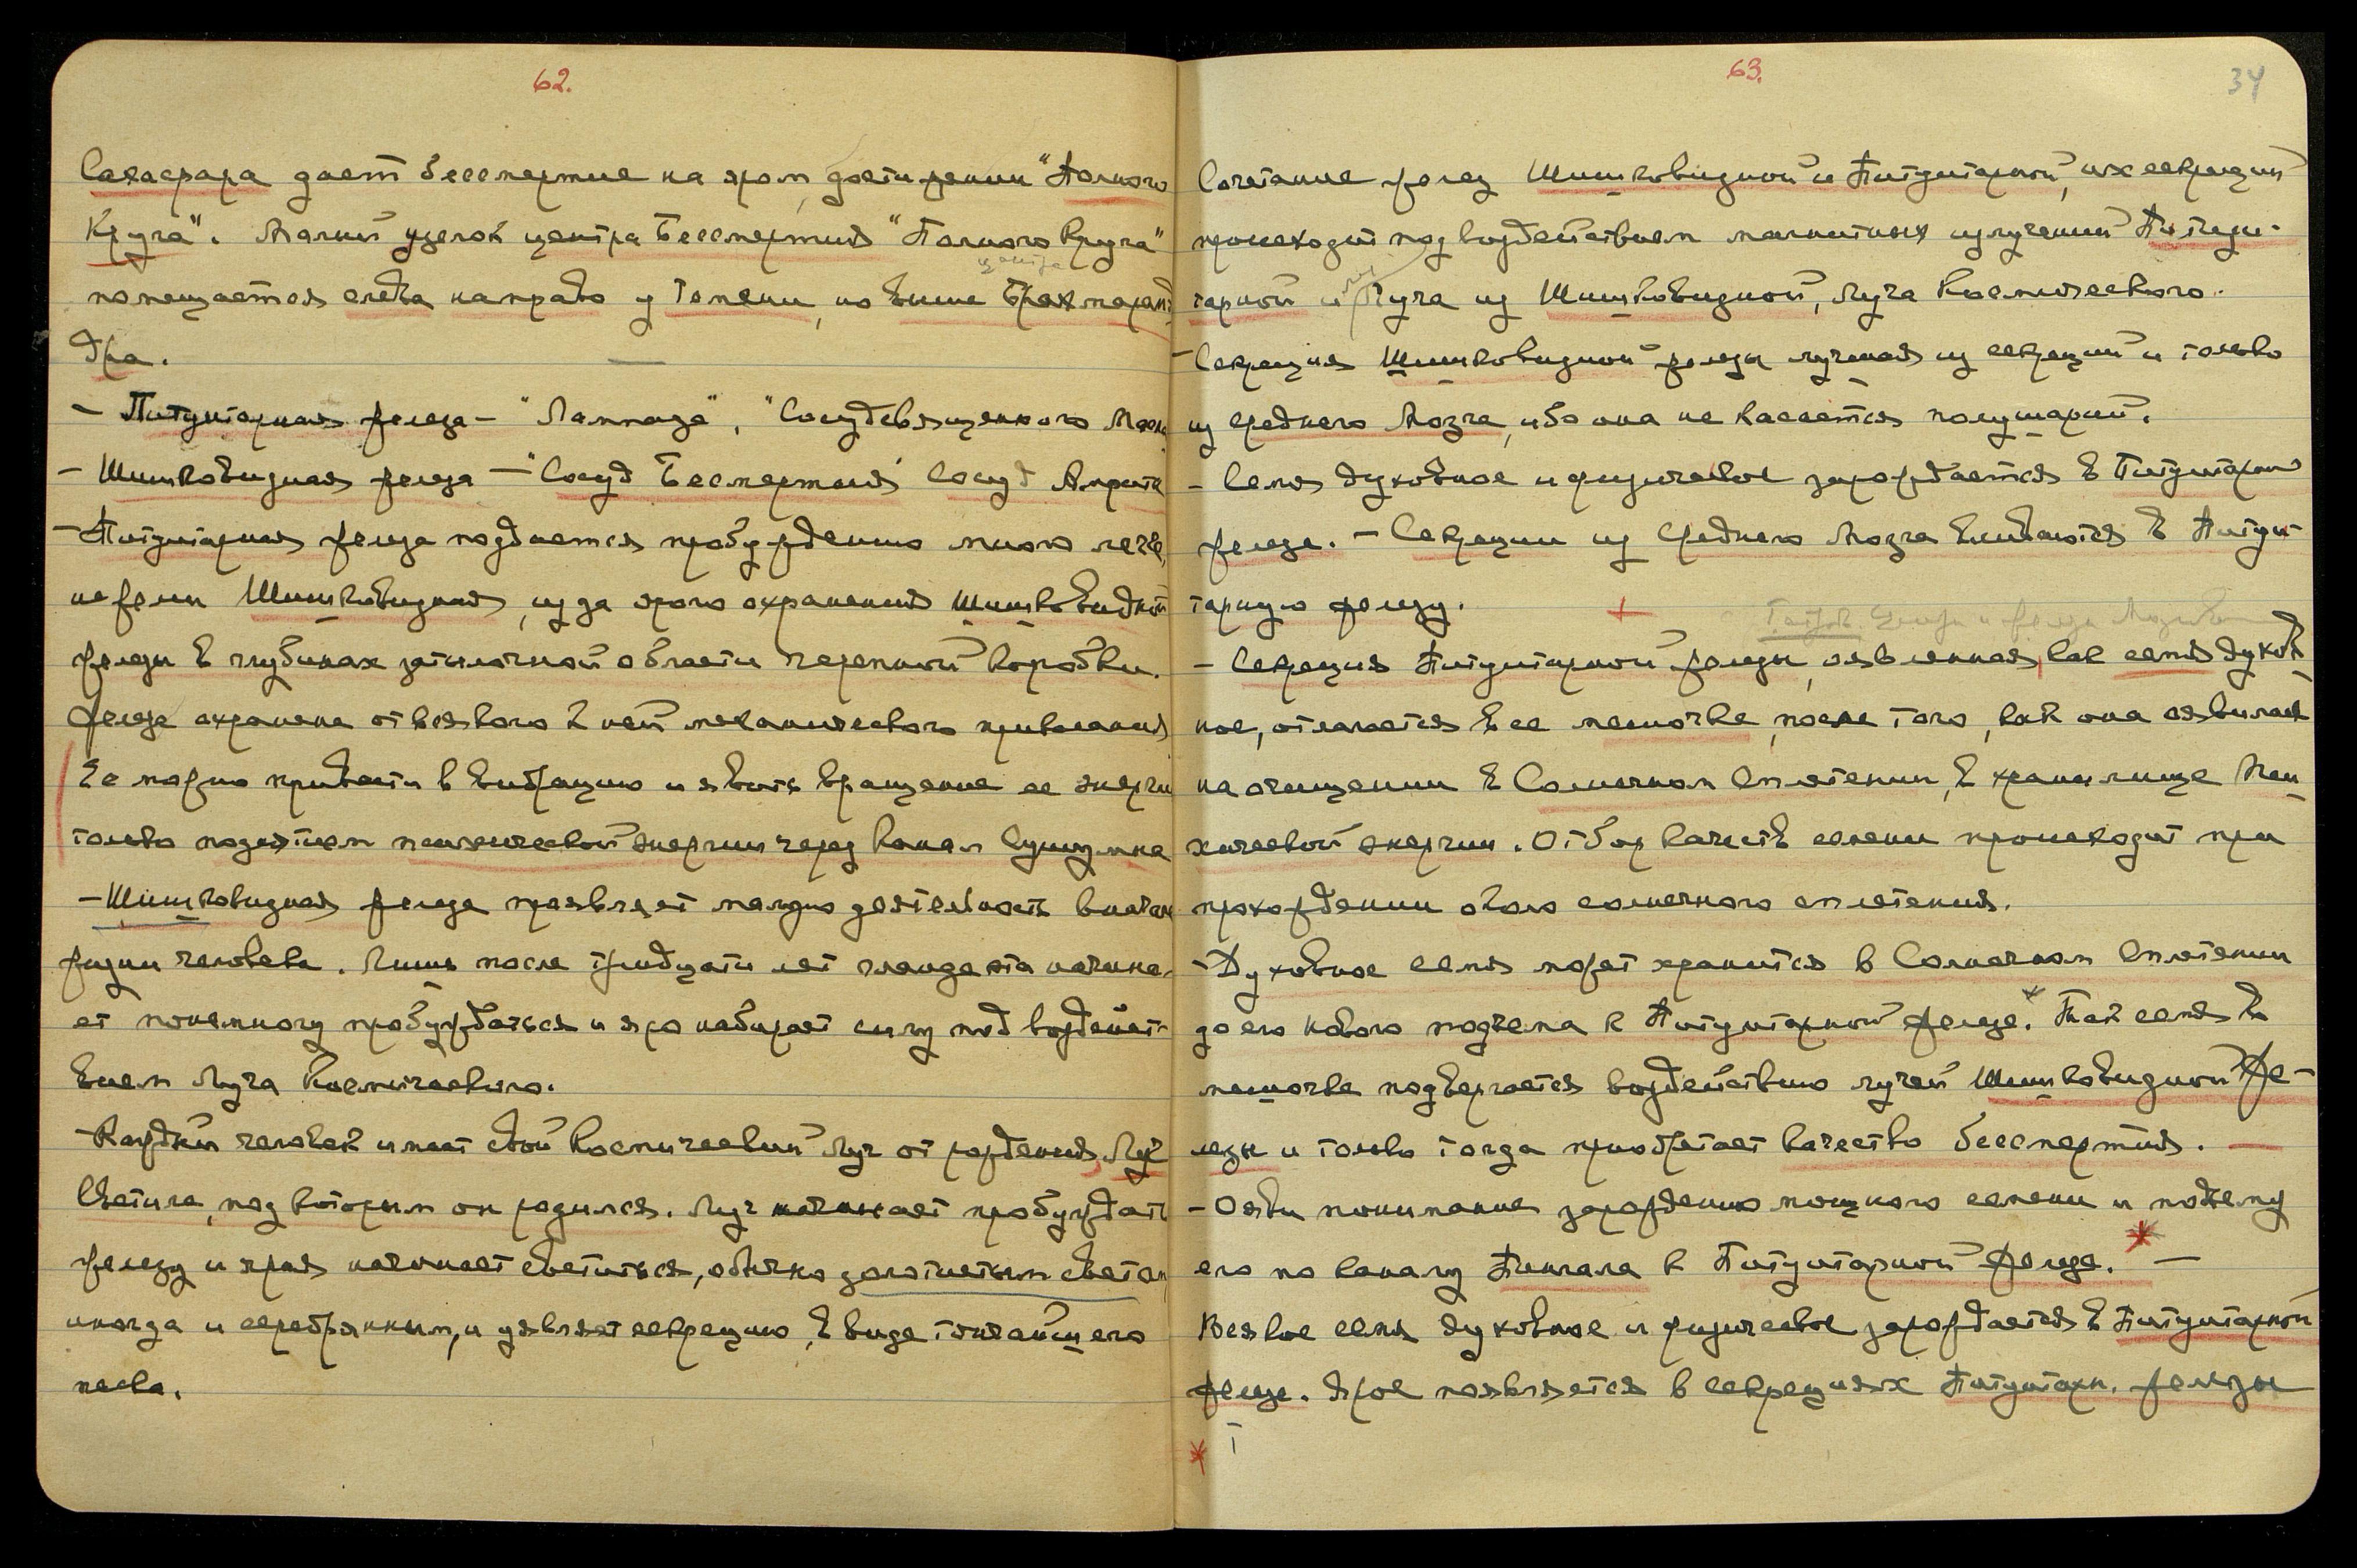 62.
Сахасрара дает бессмертие на яром достижении "Полного
Круга". Малый узелок центра Бессмертия "Полного Круга"
центра
помещается слева направо у темени, но выше Брахмаранд-
дра.
- Питуитарная железа - "Лампада", "Сосуд священного Масла
- Шишковидная железа - "Сосуд Бессмертия" Сосуд Амриты
- Питуитарная железа поддается пробуждению много легче,
нежели Шишковидная, из за ярого охранения Шишковидной
железы в глубинах затылочной области черепной коробки.
Железа охранена от всякого к ней механического прикасания
Ее можно привести в вибрацию и явить вращение ее энергии
только поднятием психической энергии через канал Сушумна
- Шишковидная железа проявляет малую деятельность вначале
жизни человека. Лишь после тридцати лет гланда эта начина-
ет понемногу пробуждаться и яро набирает силу под воздейст-
вием Луча Космического.
- Каждый человек имеет свой Космический Луч от рождения, Луч
Светила, под которым он родился. Луч начинает пробуждать
железу и ярая начинает светиться, обычно золотистым светом,
иногда и серебряным, и уявляет секрецию, в виде тончайшего
песка.
63.
34
Сочетание желез Шишковидной и Питуитарной, их секреций
происходит под воздействием магнитных излучений Питуи-
тарной и Луча из Шишковидной, Луча Космического.
- Секреция Шишковидной железы лучшая из секреций и только
из среднего Мозга, ибо она не касается полушарий.
- Семя духовное и физическое зарождается в Питуитарной
железе. - Секреции из Среднего Мозга вливаются в Питуи-
тарную железу.
- Секреция Питуитарной железы, оявленная, как семя духов-
ное, отлагается в ее мешочке, после того, как она оявилась
на очищении в Солнечном Сплетении, в хранилище Пси-
хической энергии. Отбор качеств семени происходит при
прохождении около солнечного сплетения.
- Духовное семя может храниться в Солнечном Сплетении
до его нового подъема к Питуитарной железе. Так семя в
мешочке подвергается воздействию лучей Шишковидной же-
лезы и только тогда приобретает качество бессмертия. —
- Ояви понимание зарождению мощного семени и подъему
его по каналу Пингала к Питуитарной железе. —
Всякое семя духовное и физическое зарождается в Питуитарной
железе. Ярое появляется в секрециях Питуитарн. железы